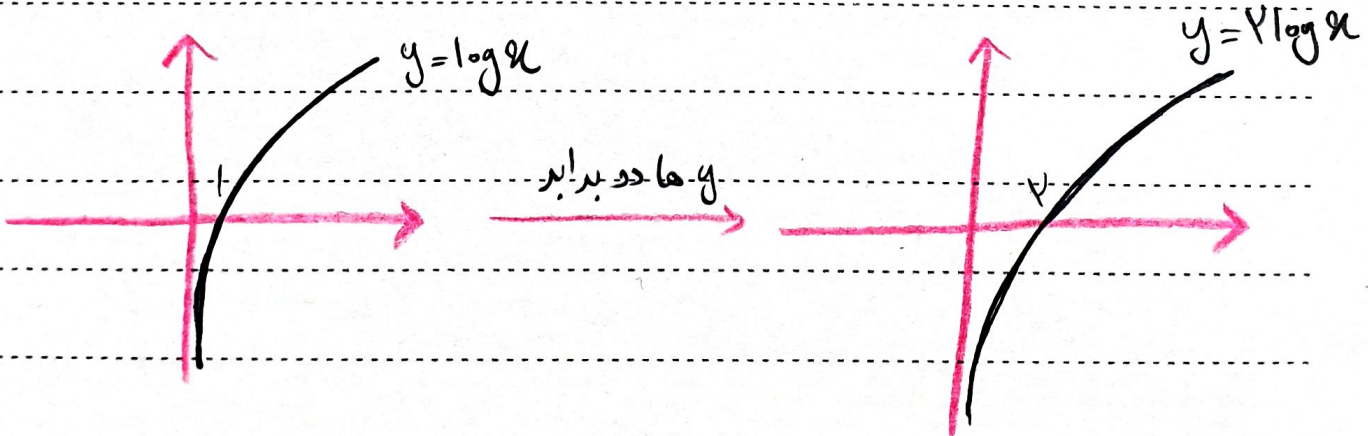 y = log x
۱
y ها دو برابر
y = ۲ log x
۲